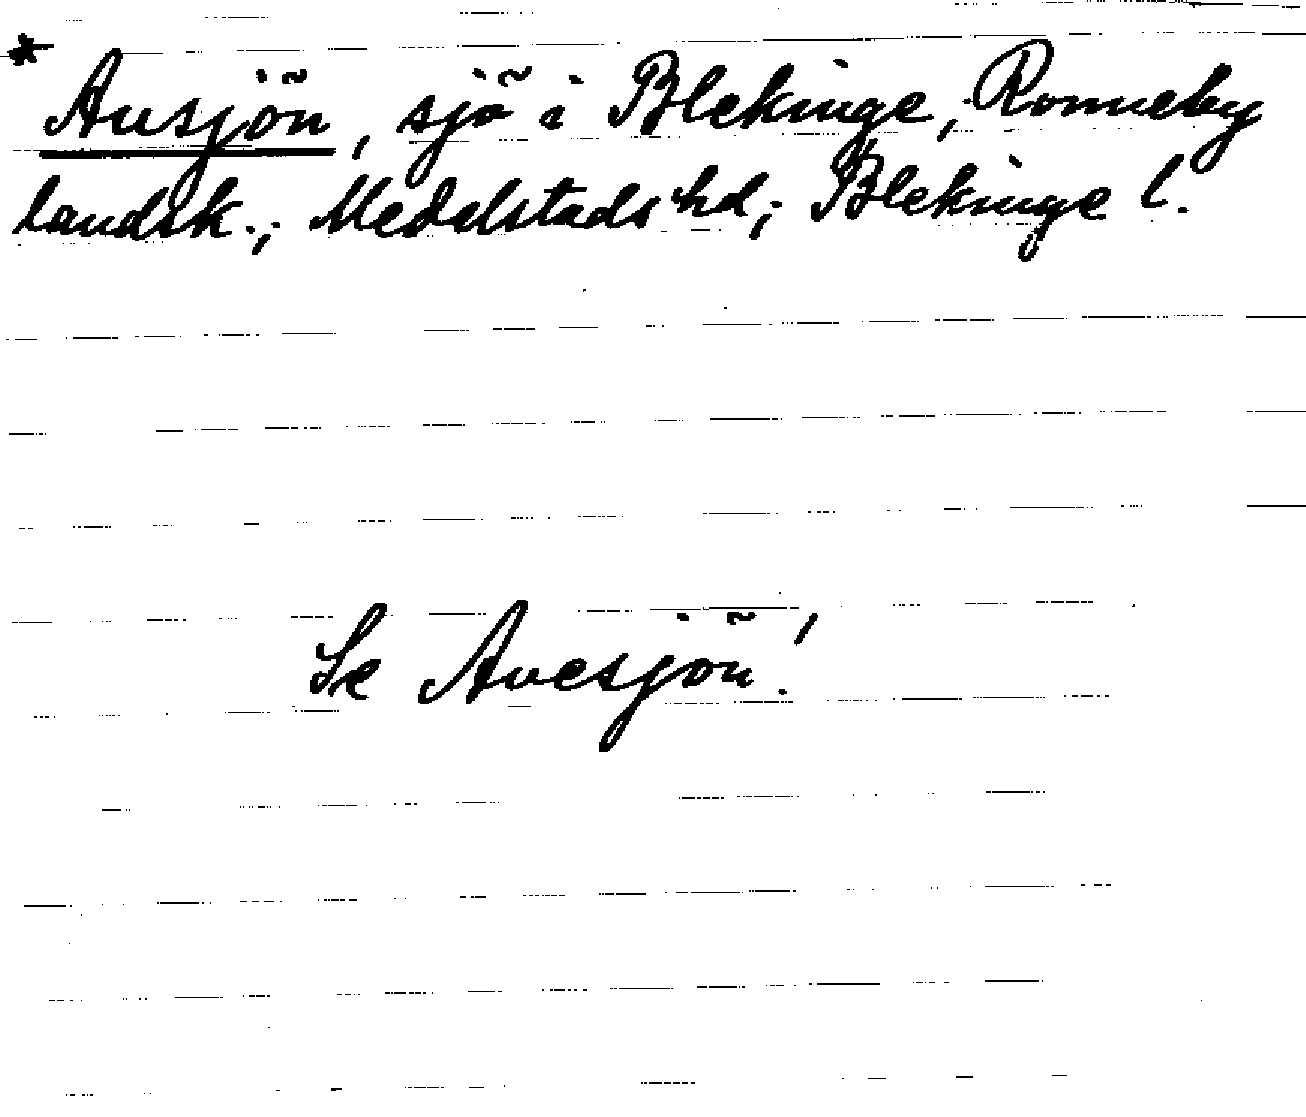 * Ausjön, sjö i Blekinge, Ronneby
landsk.; Medelstads hd; Blekinge l.
Se Avesjön!